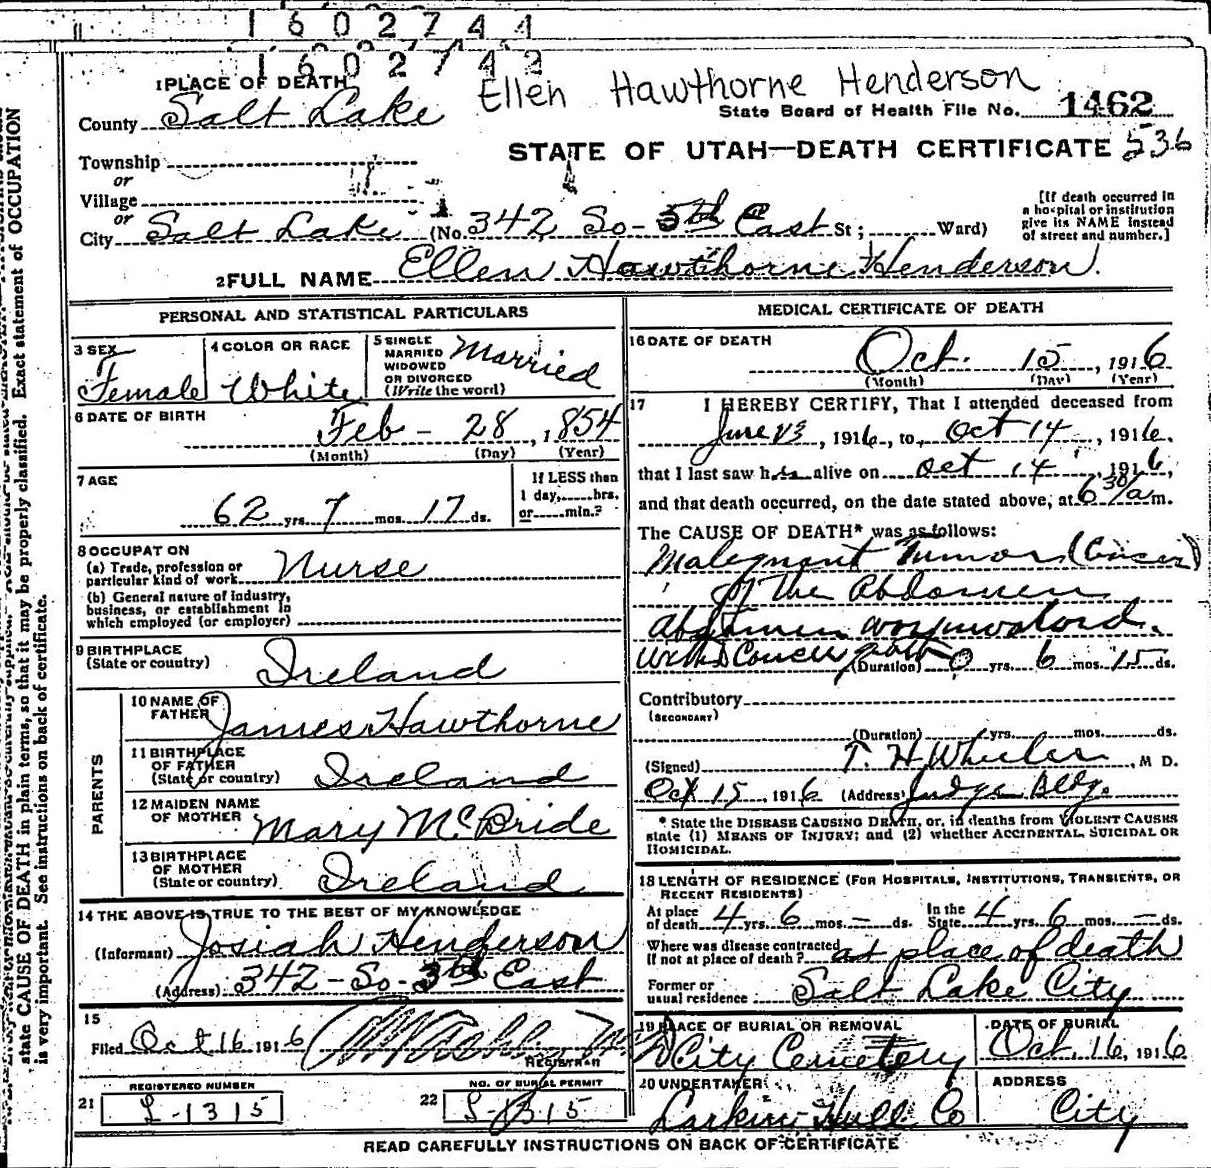 1602744
1602742
Ellen Hawthorne Henderson
1 PLACE OF DEATH
County Salt Lake
State Board of Health File No. 1462
Township
or
STATE OF UTAH—DEATH CERTIFICATE 536
Village
or
City Salt Lake (No. 342 So- 5th East St; Ward)
[If death occurred in
a hospital or institution
give its NAME instead
of street and number.]
2 FULL NAME Ellen Hawthorne Henderson.
PERSONAL AND STATISTICAL PARTICULARS
3 SEX
Female
4 COLOR OR RACE
White
5 SINGLE
MARRIED
WIDOWED
OR DIVORCED
(Write the word)
Married
6 DATE OF BIRTH
Feb - 28, 1854
(Month) (Day) (Year)
7 AGE
62 yrs. 7 mos. 17 ds.
If LESS than
1 day, hrs.
or min.?
8 OCCUPATION
(a) Trade, profession or
particular kind of work Nurse
(b) General nature of industry,
business, or establishment in
which employed (or employer)
9 BIRTHPLACE
(State or country) Ireland
PARENTS
10 NAME OF
FATHER James Hawthorne
11 BIRTHPLACE
OF FATHER
(State or country) Ireland
12 MAIDEN NAME
OF MOTHER Mary McBride
13 BIRTHPLACE
OF MOTHER
(State or country) Ireland
14 THE ABOVE IS TRUE TO THE BEST OF MY KNOWLEDGE
(Informant) Josiah Henderson
(Address) 342-So-5th East
15
Filed Oct 16 1916
REGISTRAR
REGISTERED NUMBER
21 L-1315
NO. OF BURIAL PERMIT
22 L-1315
MEDICAL CERTIFICATE OF DEATH
16 DATE OF DEATH
Oct. 15, 1916
(Month) (Day) (Year)
17 I HEREBY CERTIFY, That I attended deceased from
June 13, 1916, to Oct 14, 1916.
that I last saw her alive on Oct 14, 1916,
and that death occurred, on the date stated above, at 6 30/a m.
The CAUSE OF DEATH* was as follows:
Malegnant Tumor (Cancer)
of the Abdomen
Abdomen
with Cancer (Duration) 0 yrs. 6 mos. 15 ds.
Contributory
(SECONDARY)
(Duration) yrs. mos. ds.
(Signed) T. H. Wheeler, M D.
Oct 15, 1916 (Address) Judge Bldg.
* State the DISEASE CAUSING DEATH, or, in deaths from VIOLENT CAUSES
state (1) MEANS OF INJURY; and (2) whether ACCIDENTAL, SUICIDAL OR
HOMICIDAL.
18 LENGTH OF RESIDENCE (FOR HOSPITALS, INSTITUTIONS, TRANSIENTS, OR
RECENT RESIDENTS)
At place
of death 4 yrs. 6 mos. - ds.
In the
State 4 yrs. 6 mos. - ds.
Where was disease contracted
if not at place of death? at place of death
Former or
usual residence: Salt Lake City
19 PLACE OF BURIAL OR REMOVAL
City Cemetery
DATE OF BURIAL
Oct. 16, 1916
20 UNDERTAKER
Larkin Hull Co
ADDRESS
City
READ CAREFULLY INSTRUCTIONS ON BACK OF CERTIFICATE
state CAUSE OF DEATH in plain terms, so that it may be properly classified. Exact statement of OCCUPATION
is very important. See instructions on back of certificate.